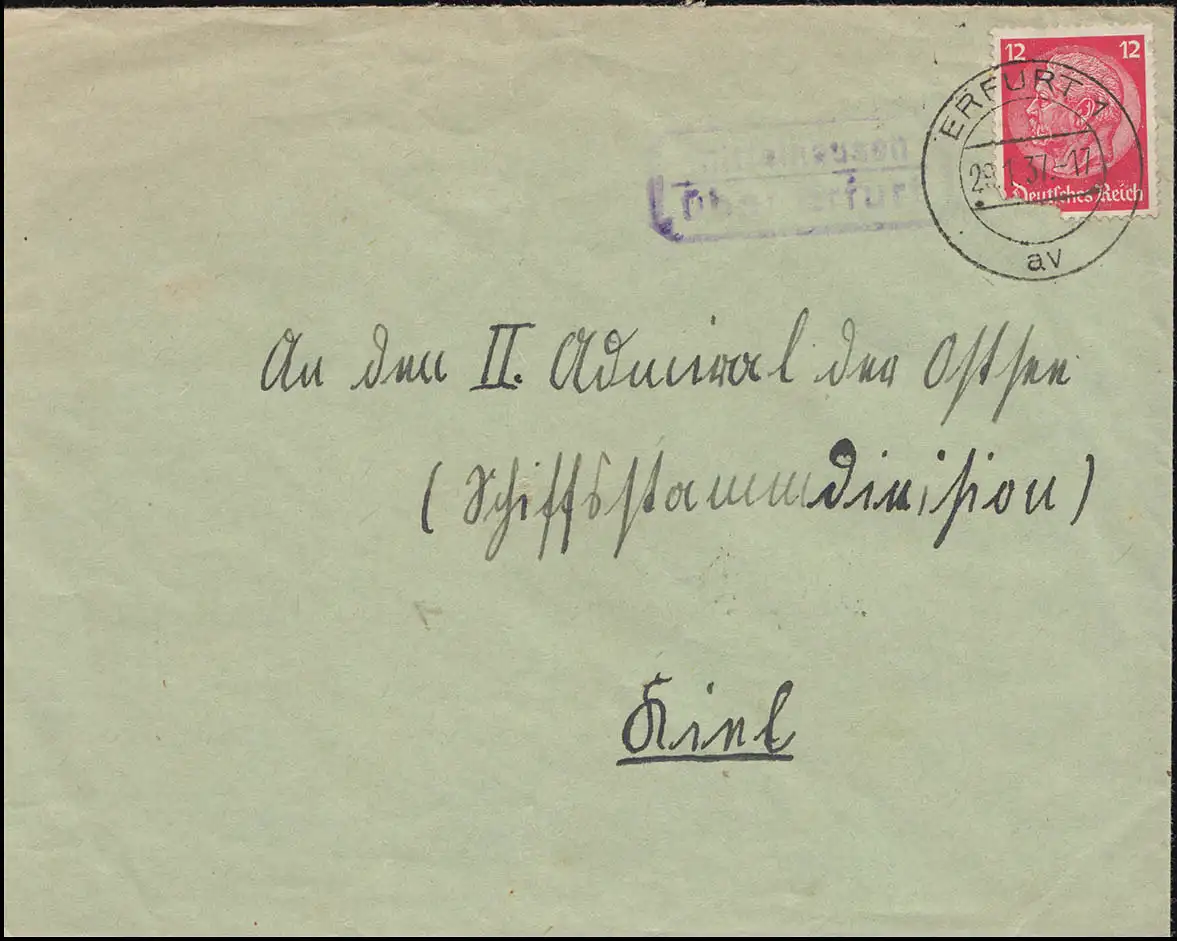 12 12
Deutsches Reich
ERFURT 1
29.1.37.-17
av
An den II. Admiral der Ostsee
(Schiffsstammdivision)
Kiel